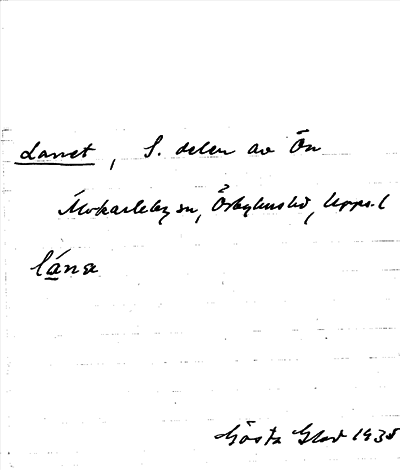 Lanet, S. delen av Ön
Älvkarleby sn, Örbyhus hd, Upps. l
Gösta 1935